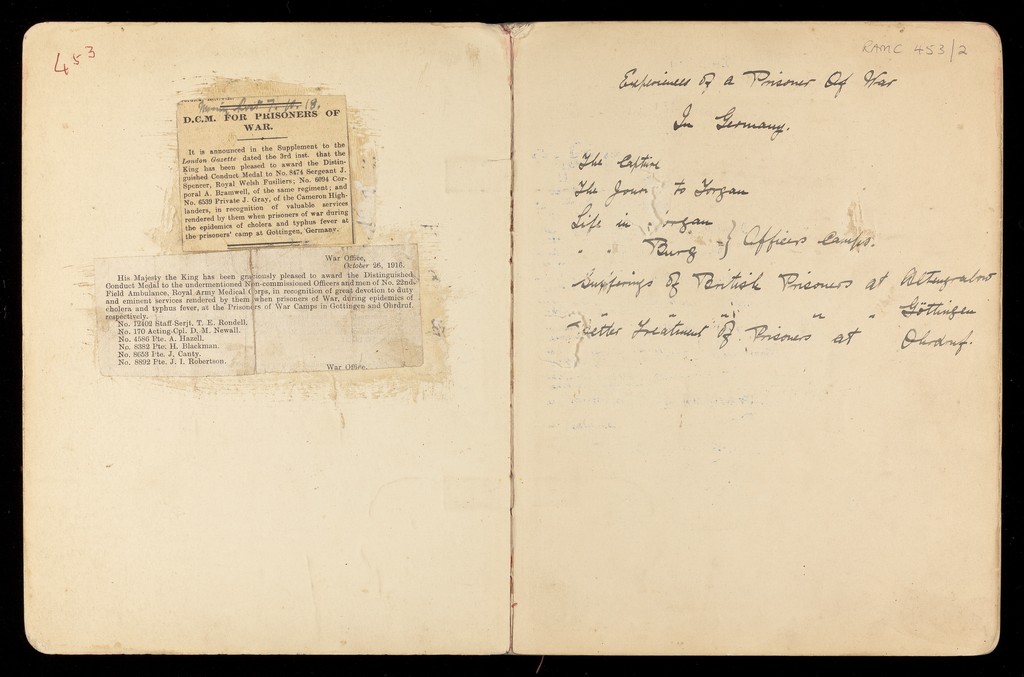 453
D.C.M. FOR PRISONERS OF
WAR.
It is announced in the Supplement to the
London Gazette dated the 3rd inst. that the
King has been pleased to award the Distin-
guished Conduct Medal to No. 8474 Sergeant J.
Spencer, Royal Welsh Fusiliers; No. 6094 Cor-
poral A. Bramwell, of the same regiment; and
No. 6539 Private J. Gray, of the Cameron High-
landers, in recognition of valuable services
rendered by them when prisoners of war during
the epidemics of cholera and typhus fever at
the prisoners' camp at Gottingen, Germany.
War Office,
October 26, 1916.
His Majesty the King has been graciously pleased to award the Distinguished
Conduct Medal to the undermentioned Non-commissioned Officers and men of No. 22nd
Field Ambulance, Royal Army Medical Corps, in recognition of great devotion to duty
and eminent services rendered by them when prisoners of War, during epidemics of
cholera and typhus fever, at the Prisoners of War Camps in Gottingen and Ohrdruf,
respectively.
No. 12402 Staff-Serjt. T. E. Rendell.
No. 170 Acting-Cpl. D. M. Newall.
No. 4586 Pte. A. Hazell.
No. 8382 Pte. H. Blackman.
No. 8653 Pte. J. Canty.
No. 8892 Pte. J. I. Robertson.
War Office,
RAMC 453/2
Experiences of a Prisoner Of War
In Germany.
The Capture
The Journ to Torgau
Life in orgau
" " Burg } Officers Camps.
Sufferings of British Prisoners at Altengrabow
" " " " Göttingen
etter Treatment of Prisoners at Ohrdruf.